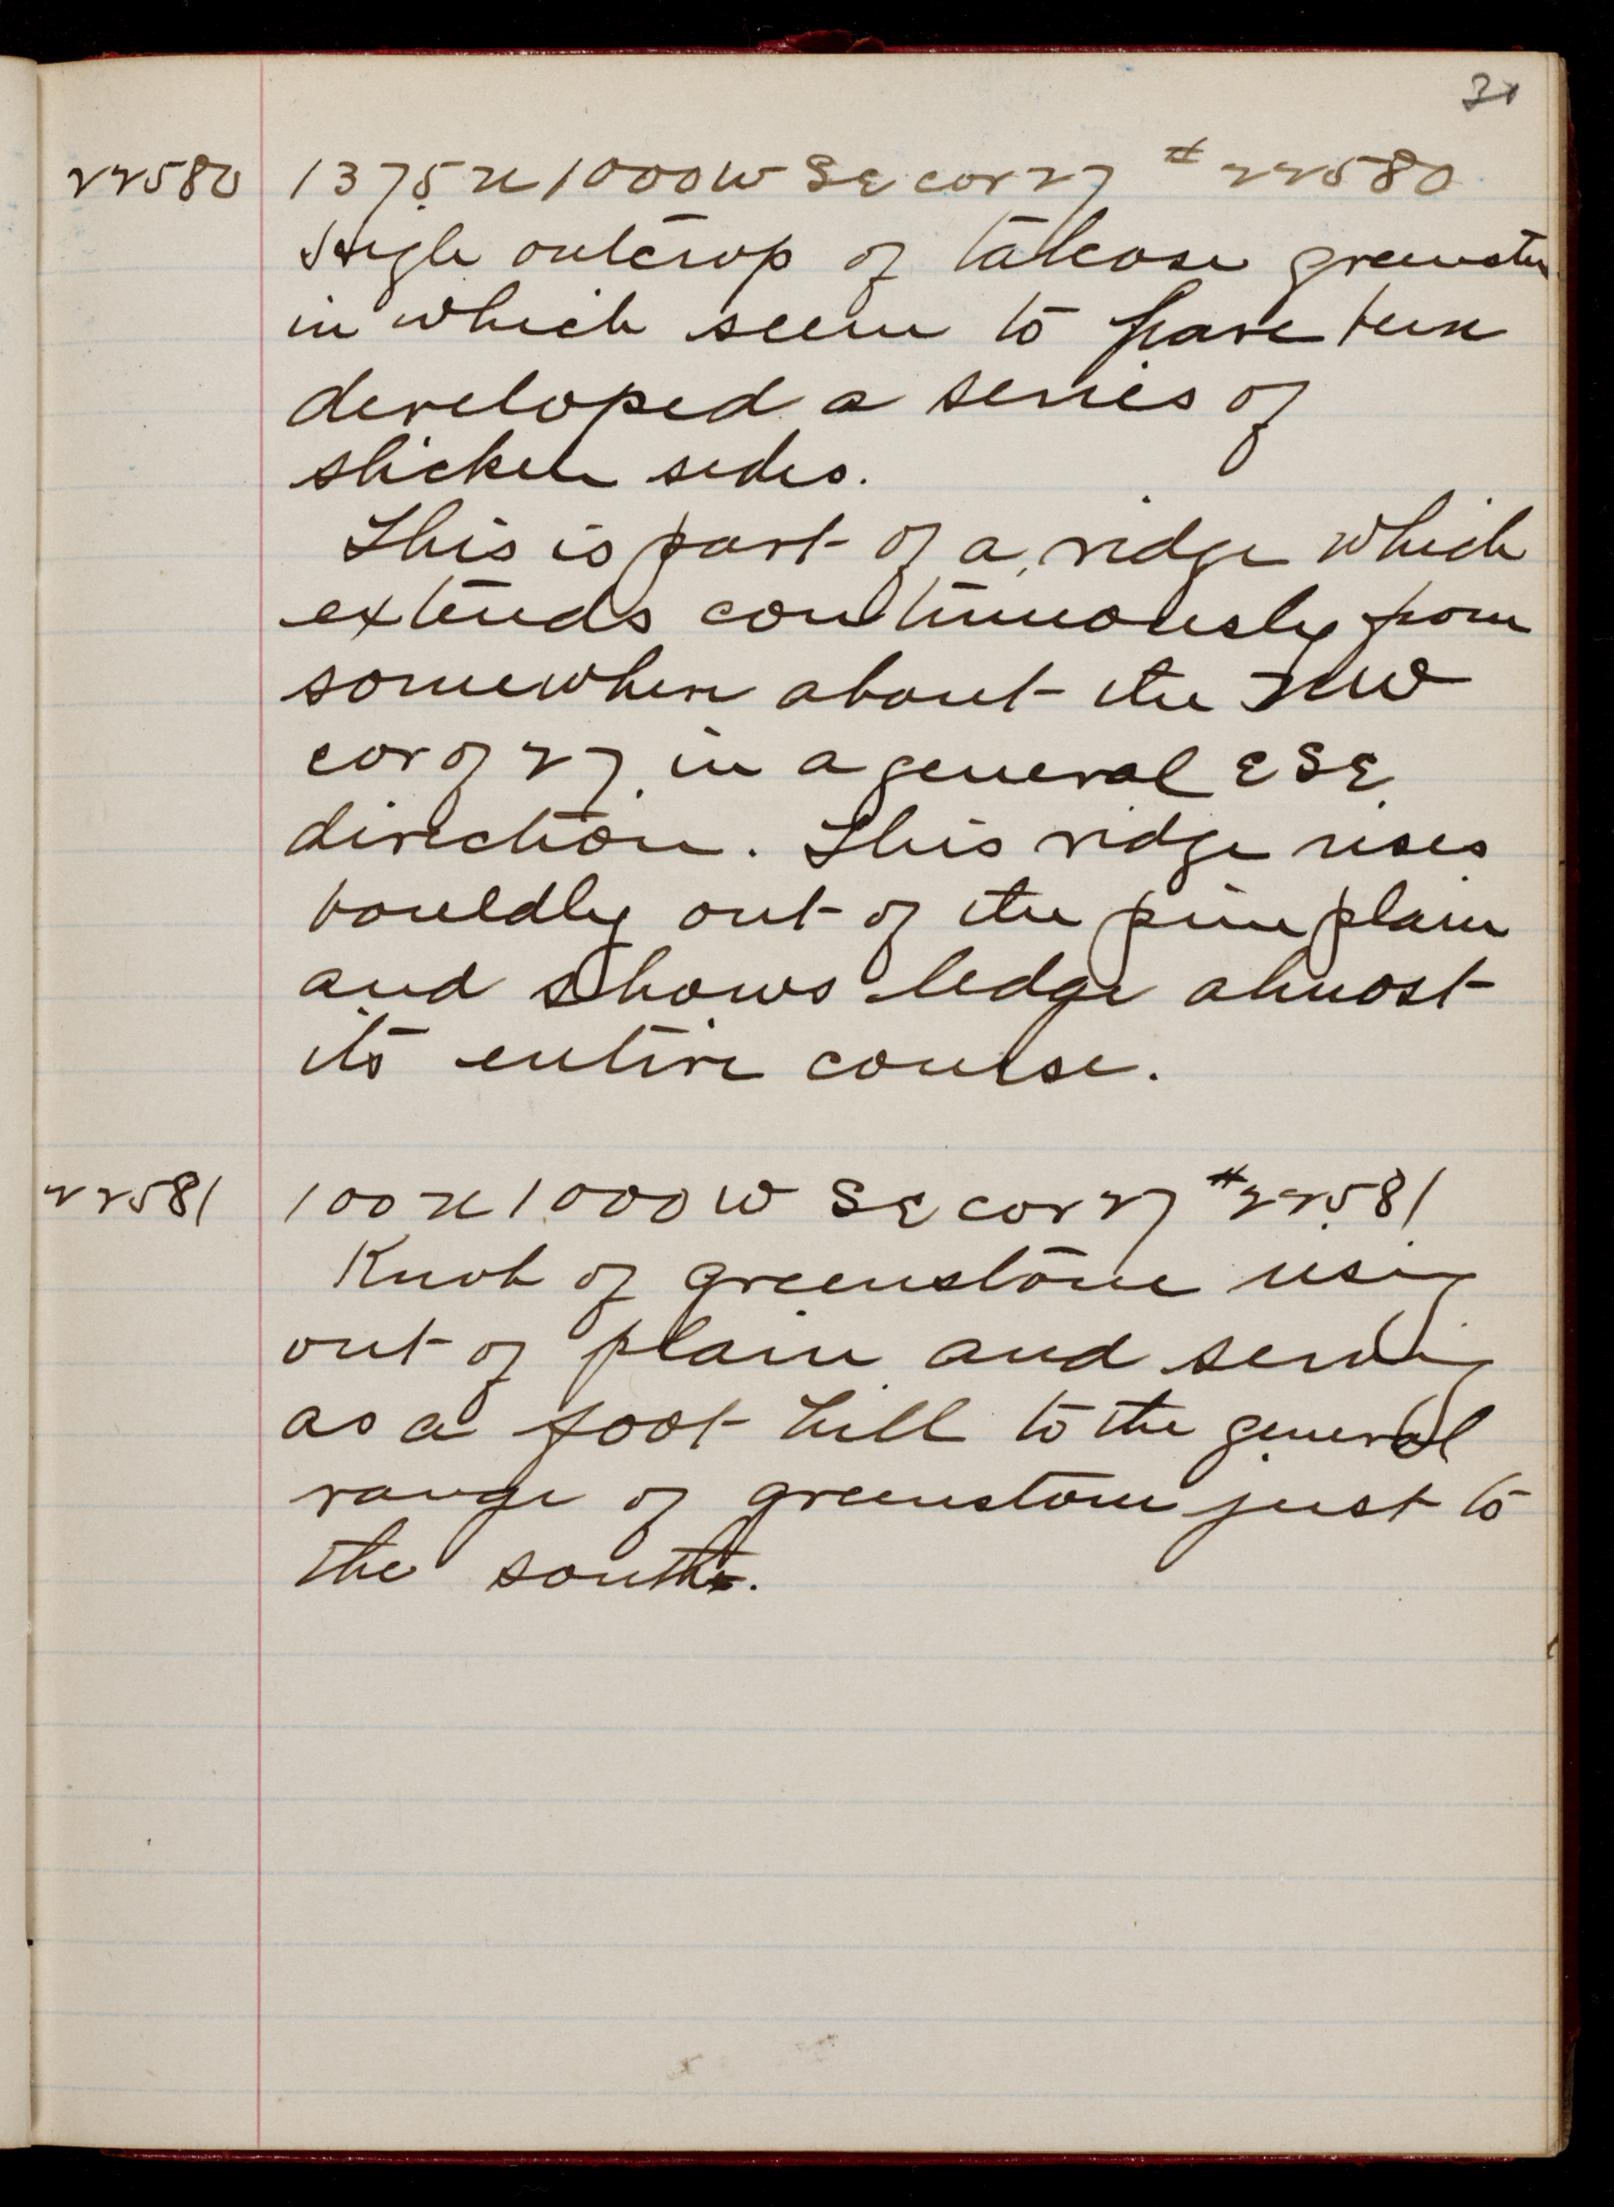 31
22580 1375 N 1000 W SE cor 27 #22580
Single outcrop of talcose greenstn
in which seem to have been
developed a series of
slicken sides.
This is part of a ridge which
extends continuously from
somewhere about the NW
cor of 27 in a general ESE
direction. This ridge rises
bouldly out of the pine plain
and shows ledge almost
its entire course.
22581 100 N 1000 W SE cor 27 #22581
Knob of greenstone rising
out of plain and serving
as a foot hill to the general
range of greenstone just to
the south.